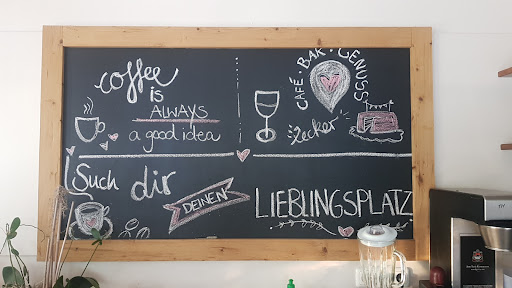 coffee
is
ALWAYS
a good idea
CAFÉ · BAR · GENUSS
lecker
Such dir
DEINEN
LIEBLINGSPLATZ